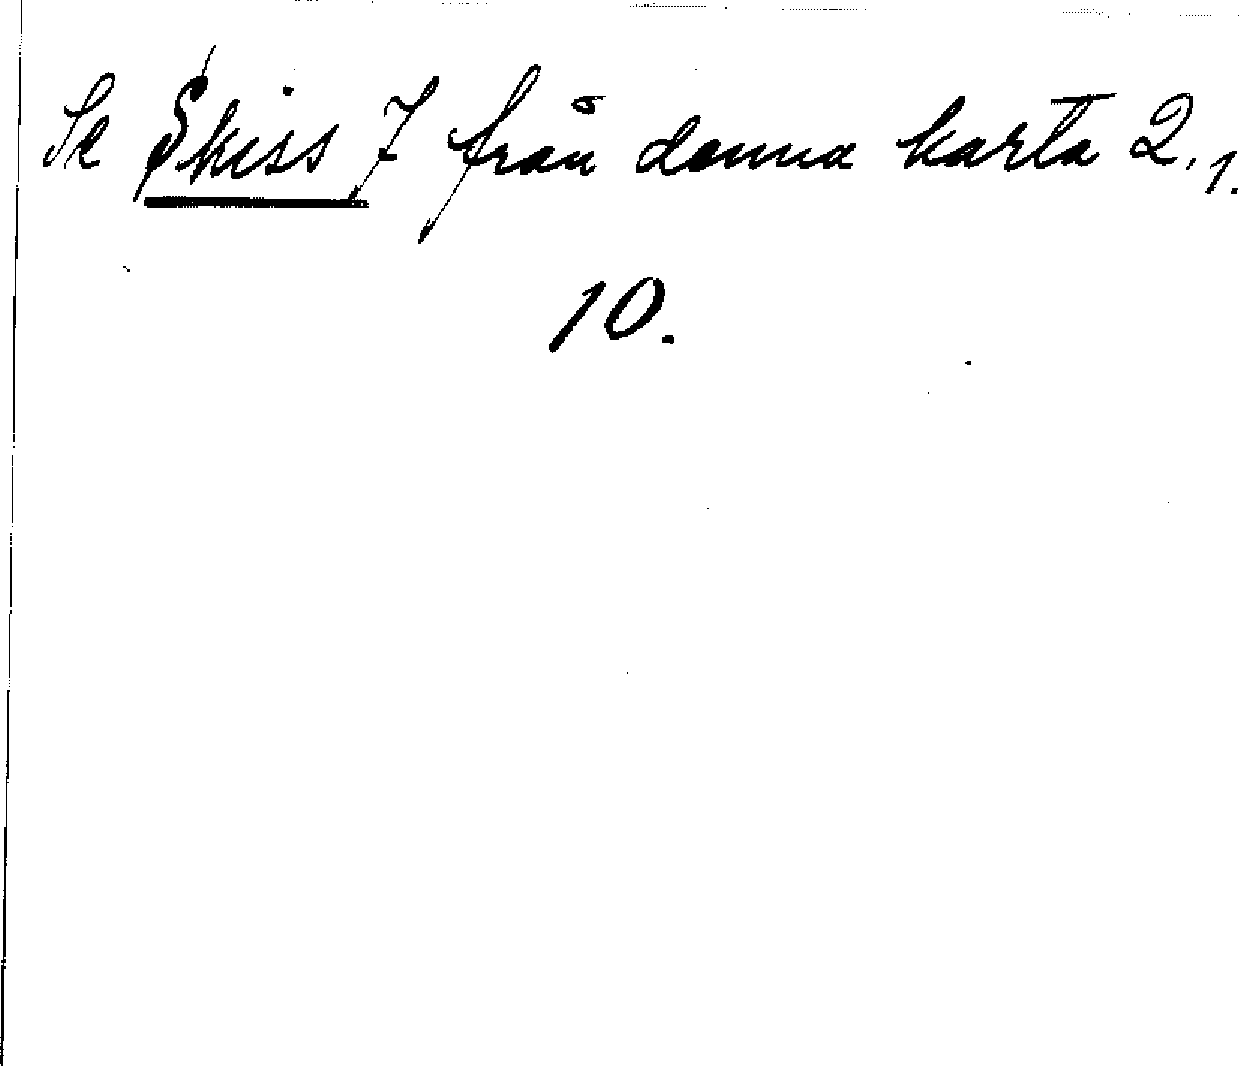 Se Skiss 7 från denna karta 2.1.
10.